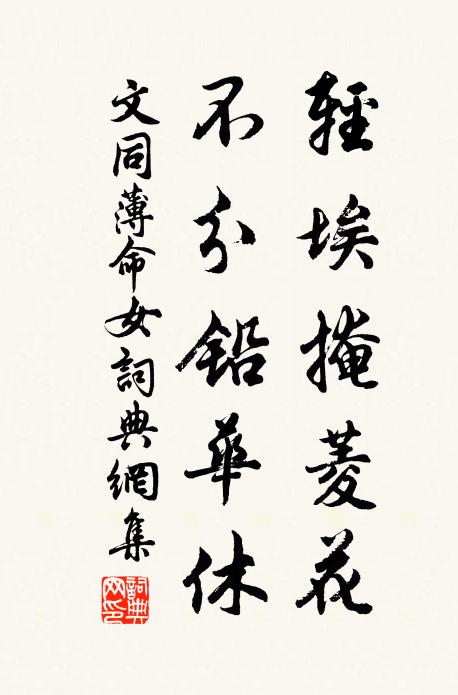 輕埃掩菱花
不分鉛華休
文同薄命女詞典網集
詞典网印